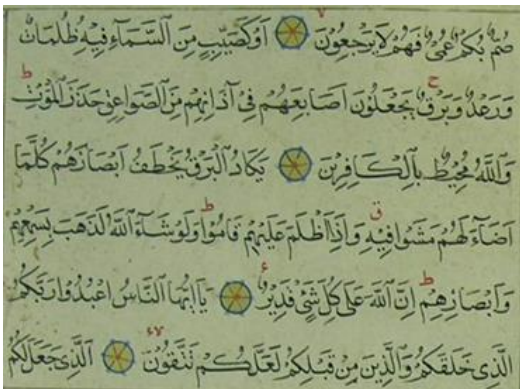 صُمٌّ بُكْمٌ عُمْيٌ فَهُمْ لَا يَرْجِعُونَ ۝ اَوْ كَصَيِّبٍ مِنَ السَّمَٓاءِ فِيهِ ظُلُمَاتٌ
وَرَعْدٌ وَبَرْقٌ يَجْعَلُونَ اَصَابِعَهُمْ فِٓي اٰذَانِهِمْ مِنَ الصَّوَاعِقِ حَذَرَ الْمَوْتِ
وَاللّٰهُ مُحِيطٌ بِالْكَافِرِينَ ۝ يَكَادُ الْبَرْقُ يَخْطَفُ اَبْصَارَهُمْ كُلَّمَٓا
اَضَٓاءَ لَهُمْ مَشَوْا فِيهِ وَاِذَٓا اَظْلَمَ عَلَيْهِمْ قَامُوا وَلَوْ شَٓاءَ اللّٰهُ لَذَهَبَ بِسَمْعِهِمْ
وَاَبْصَارِهِمْ اِنَّ اللّٰهَ عَلٰى كُلِّ شَيْءٍ قَدِيرٌ ۝ يَٓا اَيُّهَا النَّاسُ اعْبُدُوا رَبَّكُمُ
الَّذِي خَلَقَكُمْ وَالَّذِينَ مِنْ قَبْلِكُمْ لَعَلَّكُمْ تَتَّقُونَ ۝ اَلَّذِي جَعَلَ لَكُمُ